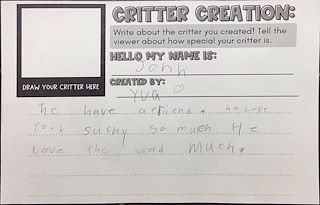 CRITTER CREATION:
Write about the critter you created! Tell the
viewer about how special your critter is.
HELLO MY NAME IS:
John
CREATED BY:
Yva
DRAW YOUR CRITTER HERE
he have a friend. he Love
sushy so much He
Love the word much.